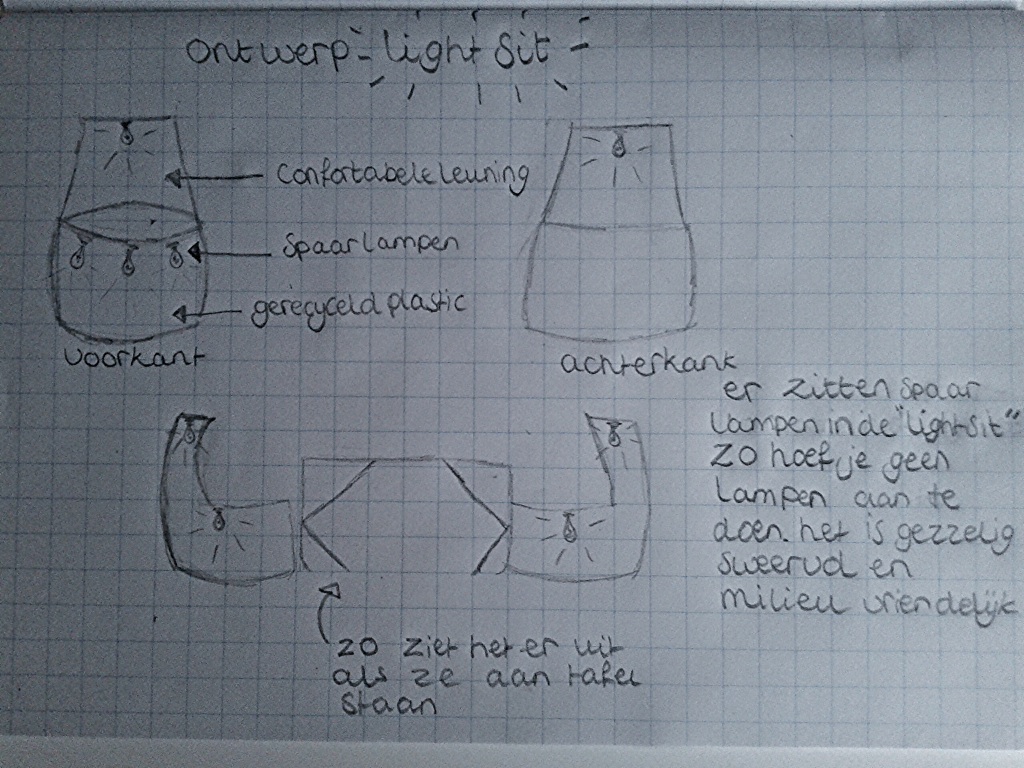 ontwerp - light Sit -
confortabele leuning
Spaarlampen
gerecyceld plastic
voorkant
achterkant
er zitten spaar
lampen in de "light-Sit"
zo hoef je geen
lampen aan te
doen. het is gezzelig
sweervol en
milieu vriendelijk
zo ziet het er uit
als ze aan tafel
staan